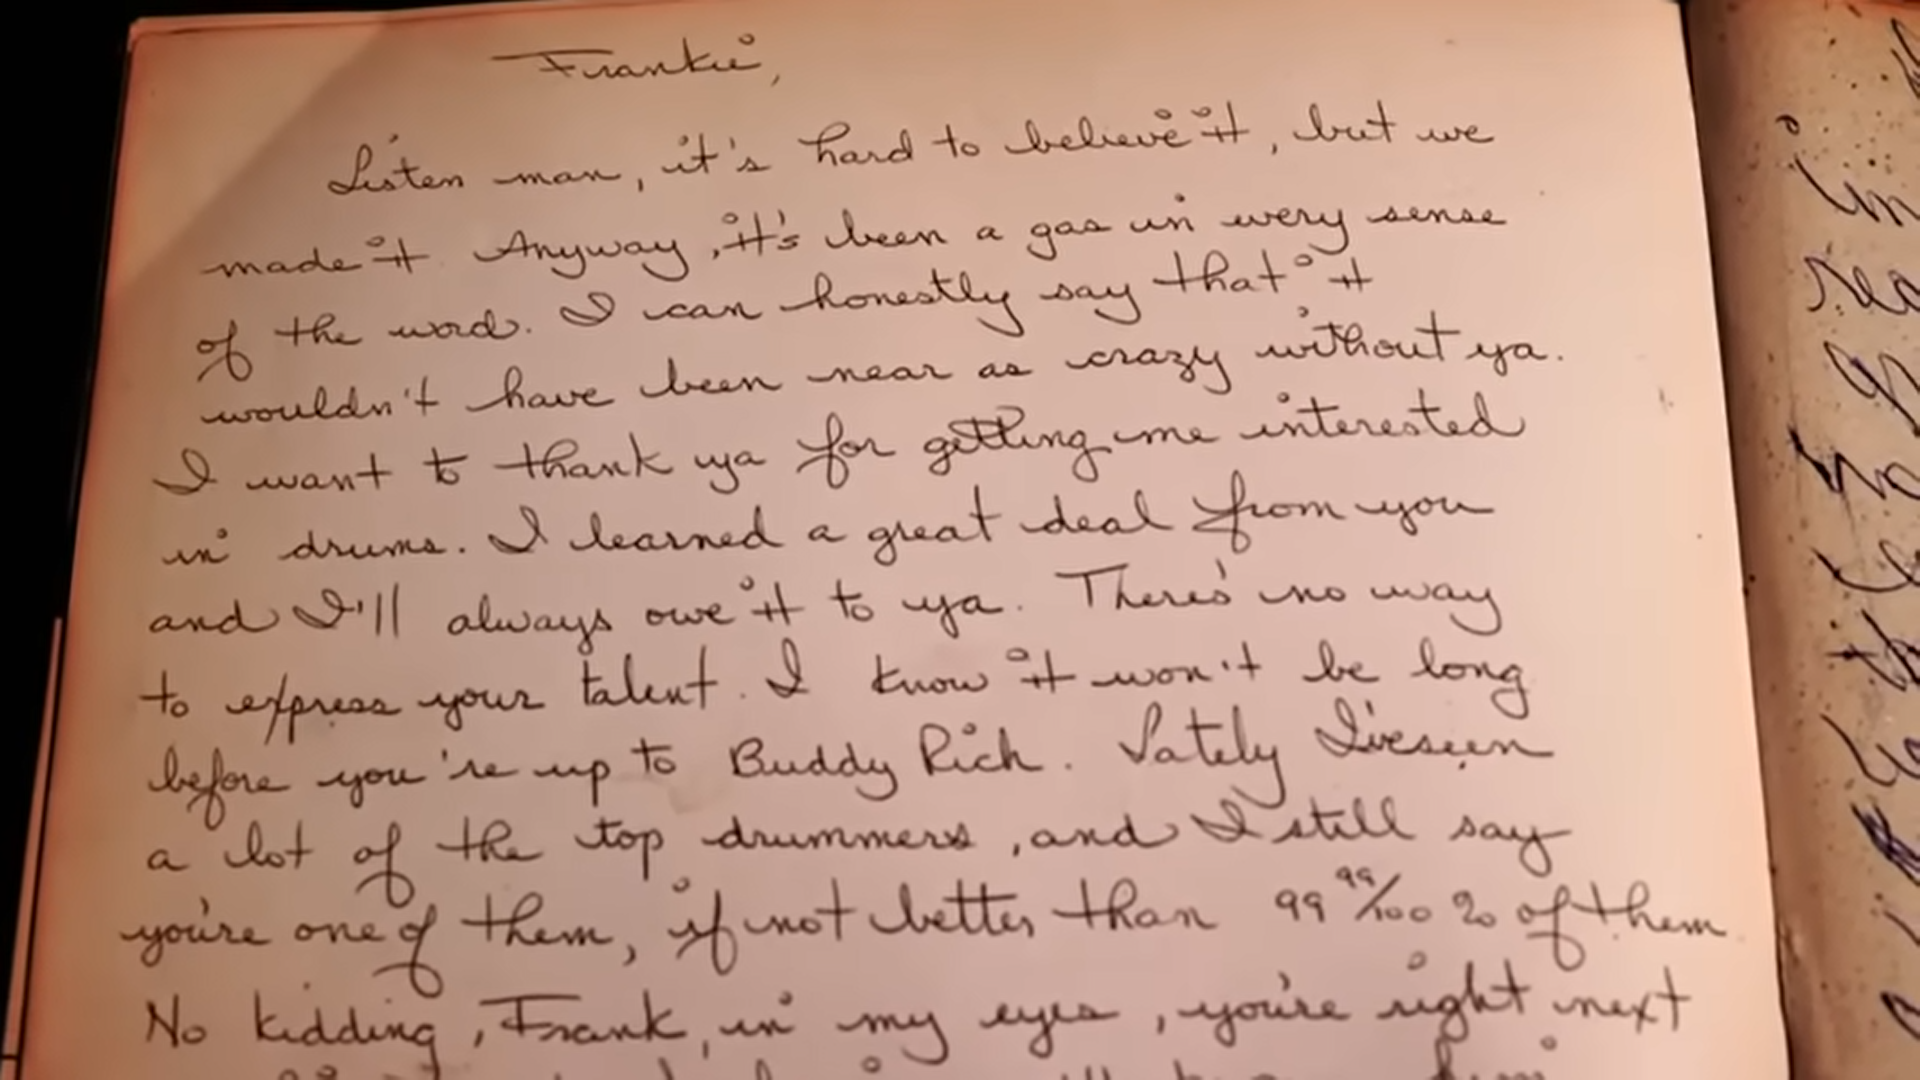 Frankie,
Listen man, it's hard to believe it, but we
made it. Anyway, it's been a gas in every sense
of the word. I can honestly say that it
wouldn't have been near as crazy without ya.
I want to thank ya for getting me interested
in drums. I learned a great deal from you
and I'll always owe it to ya. There's no way
to express your talent. I know it won't be long
before you're up to Buddy Rich. Lately I've seen
a lot of the top drummers, and I still say
you're one of them, if not better than 99 99/100 % of them
No kidding, Frank, in my eyes, you're right next